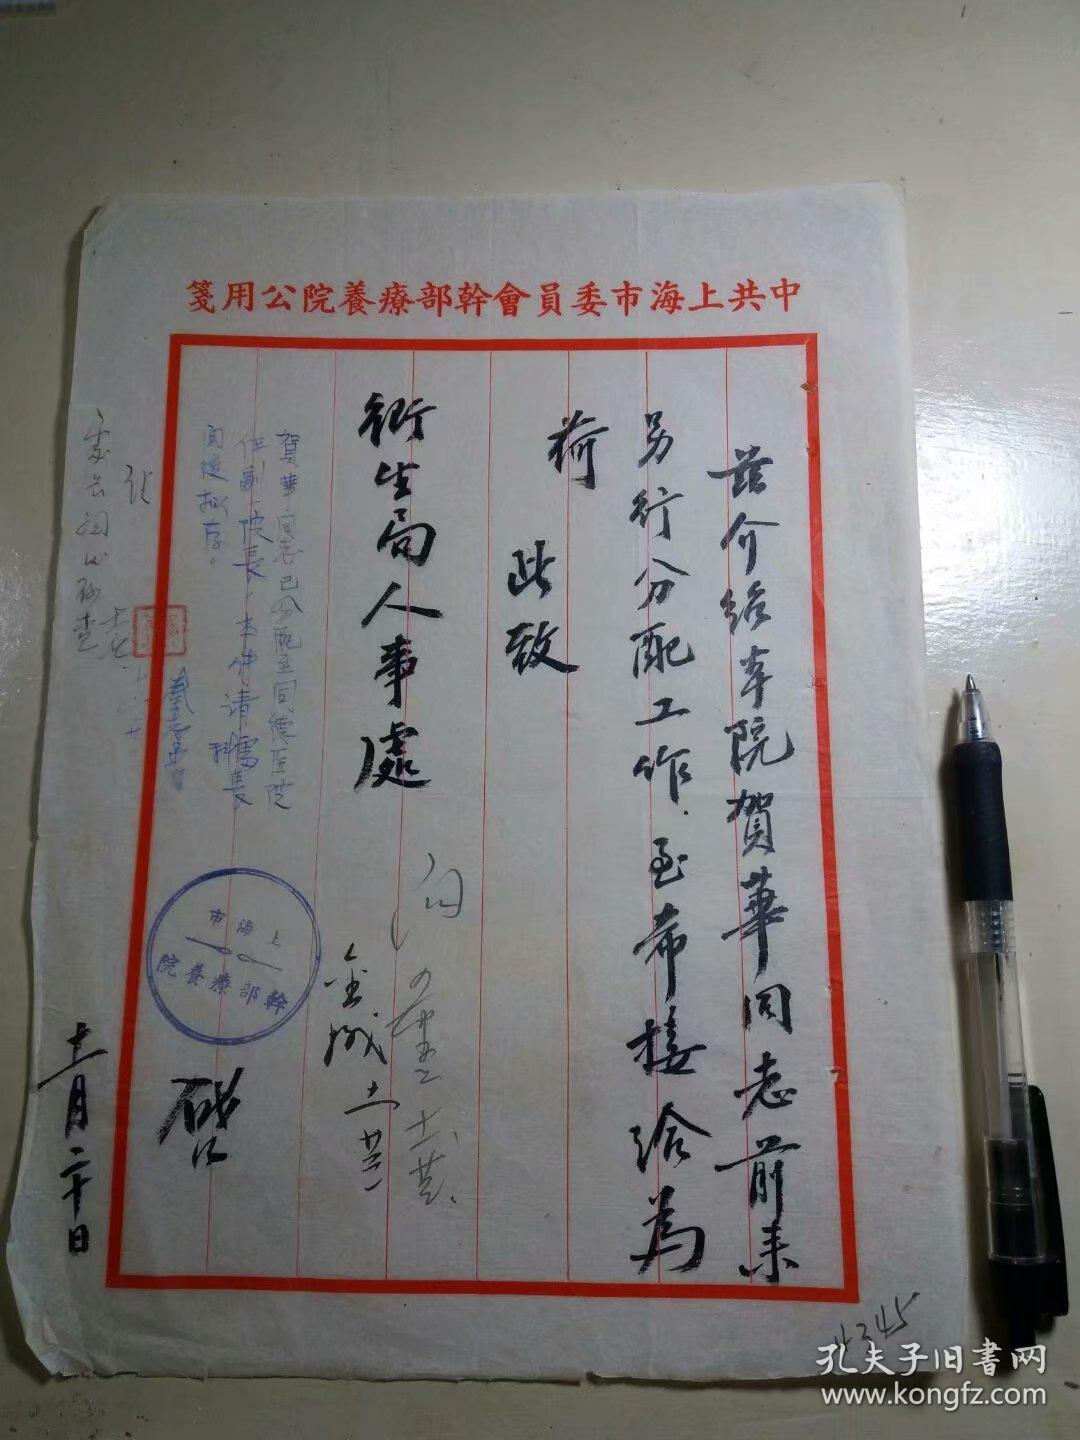 中共上海市委員會幹部療養院公用箋
茲介紹本院賀華同志前来
另行分配工作.至希接洽為
荷
此致
衛生局人事處
賀華同志已分配至同德医院
任副院長,本件请雷科長
閱後拟存。
上海市
幹部療養院
啓
十二月二十日
4345
孔夫子旧書网
www.kongfz.com